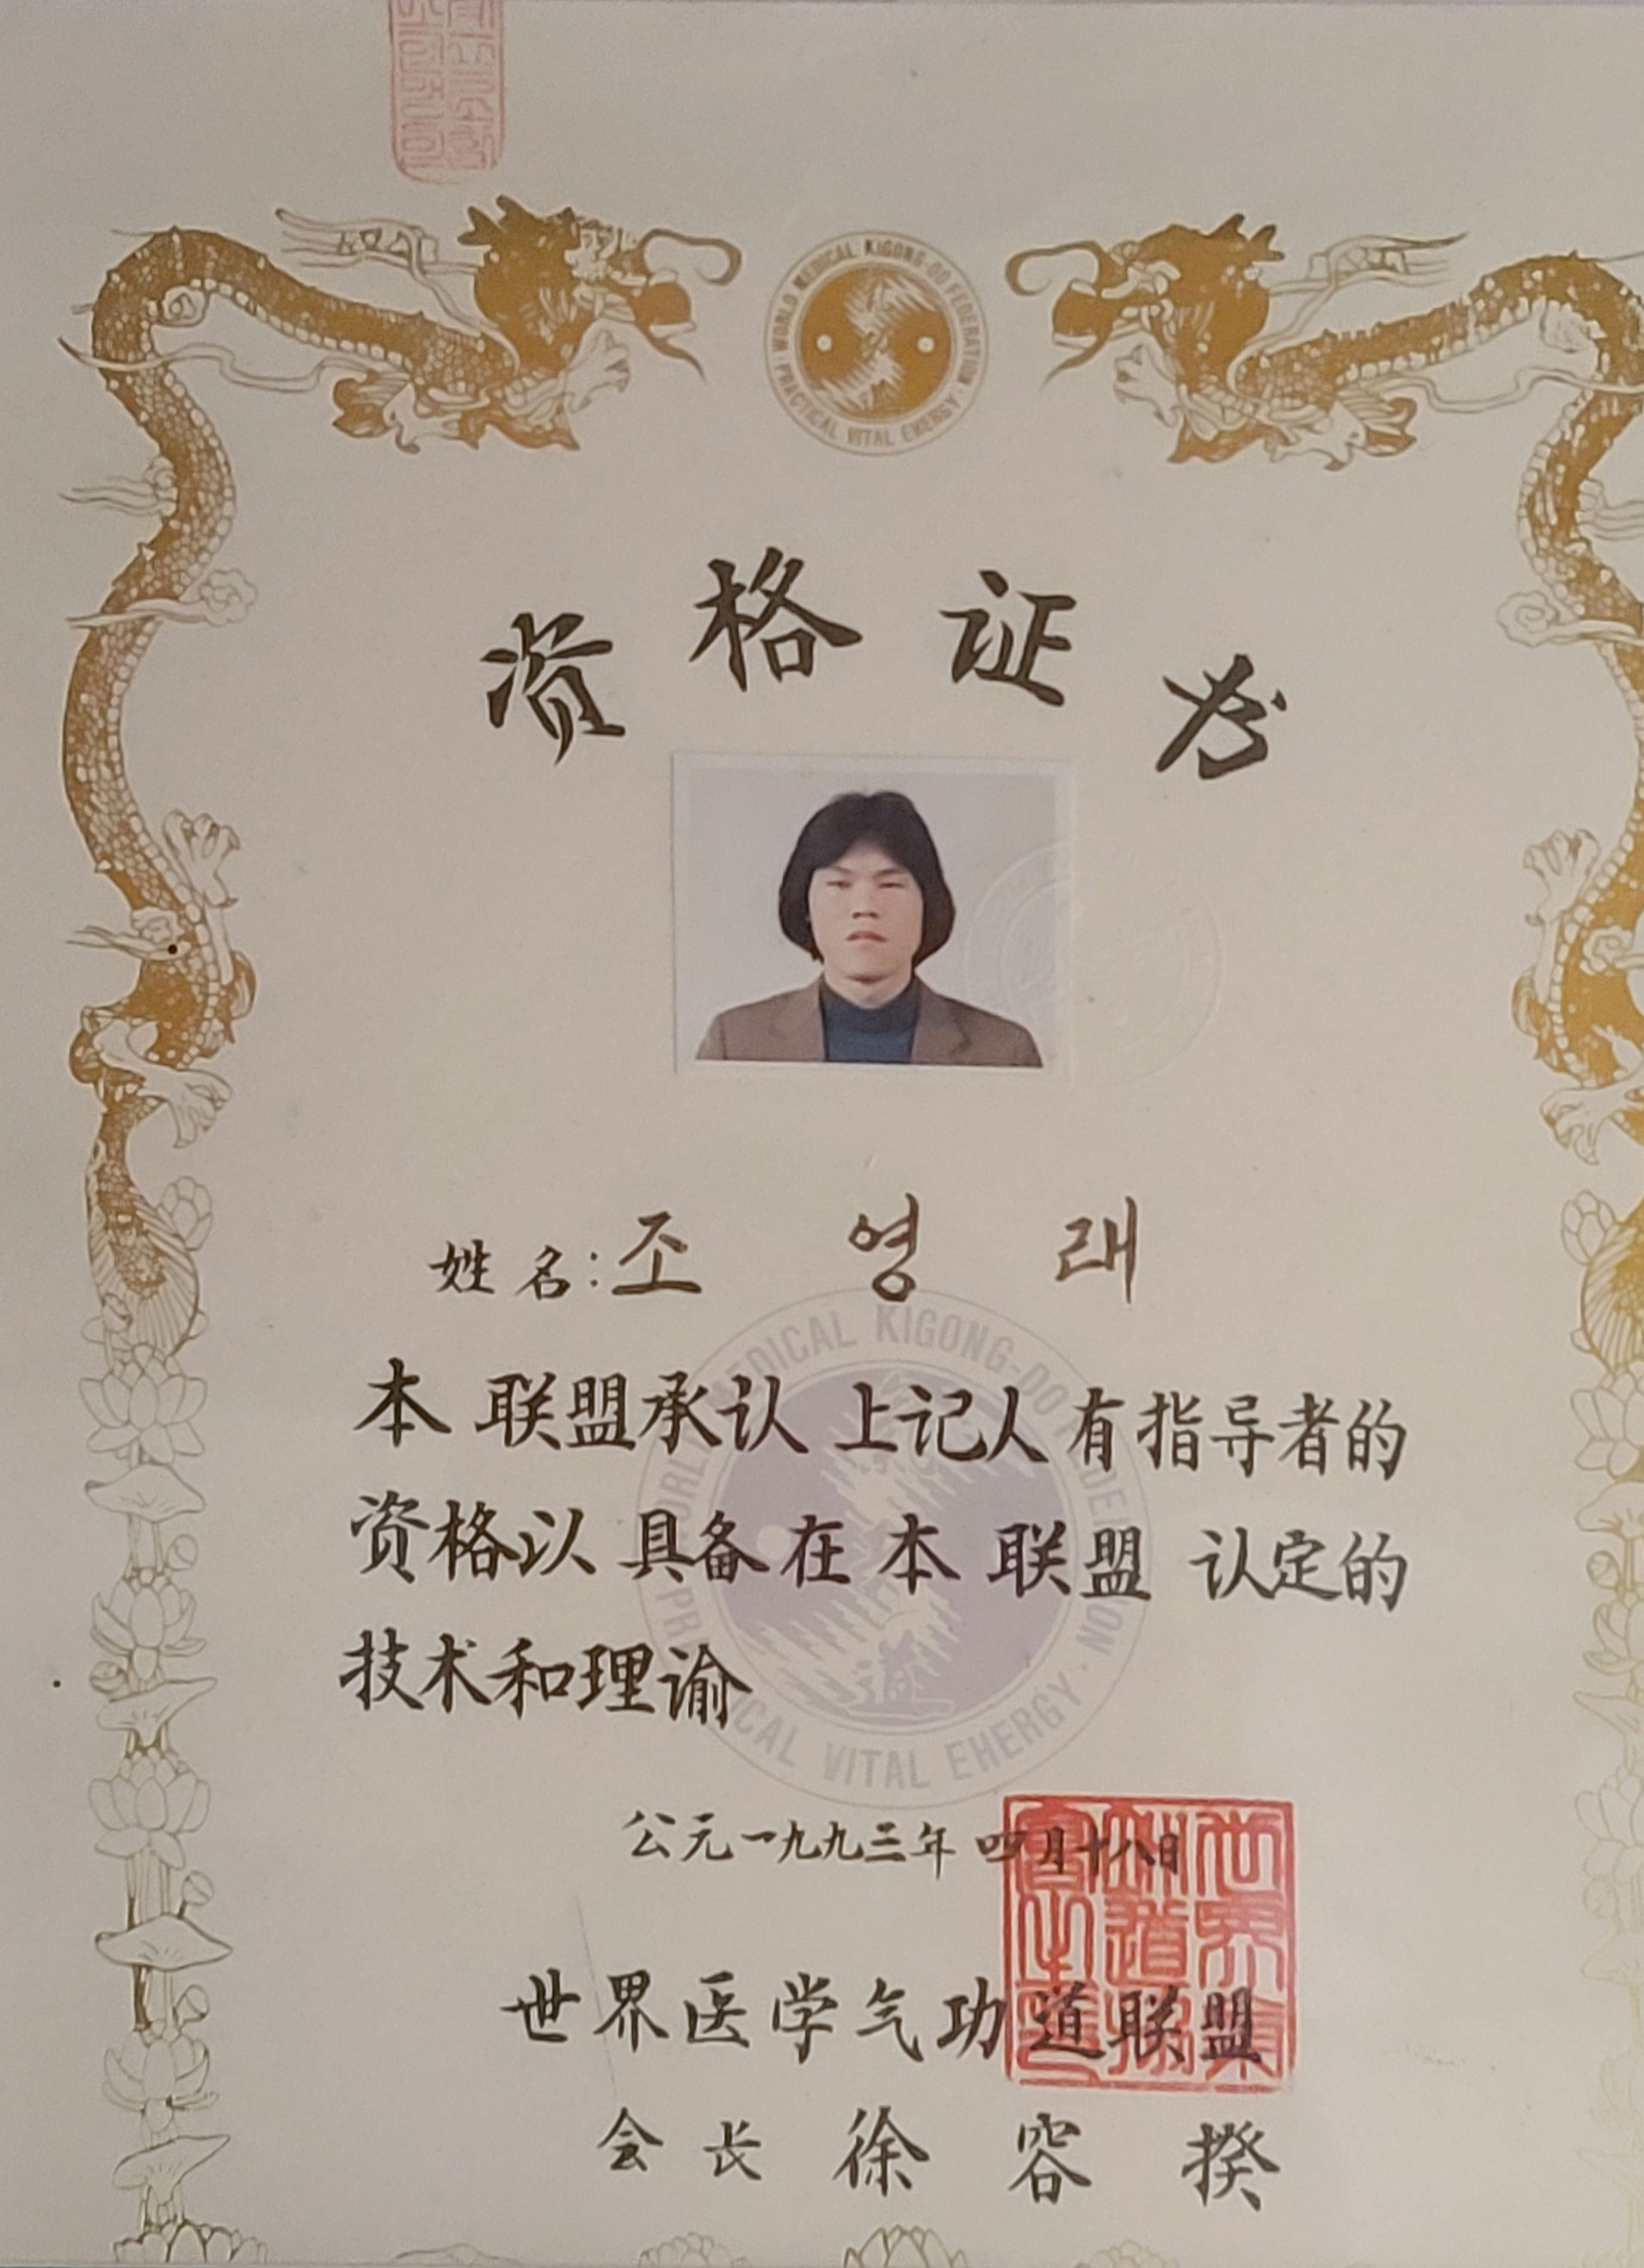 WORLD MEDICAL KIGONG-DO FEDERATION · PRACTICAL VITAL ENERGY ·
资格证书
姓名: 조 영 래
本联盟承认上记人有指导者的
资格以具备在本联盟认定的
技术和理谕
VITAL EHERGY
公元一九九三年四月十八日
世界医学气功道联盟
会长 徐容揆